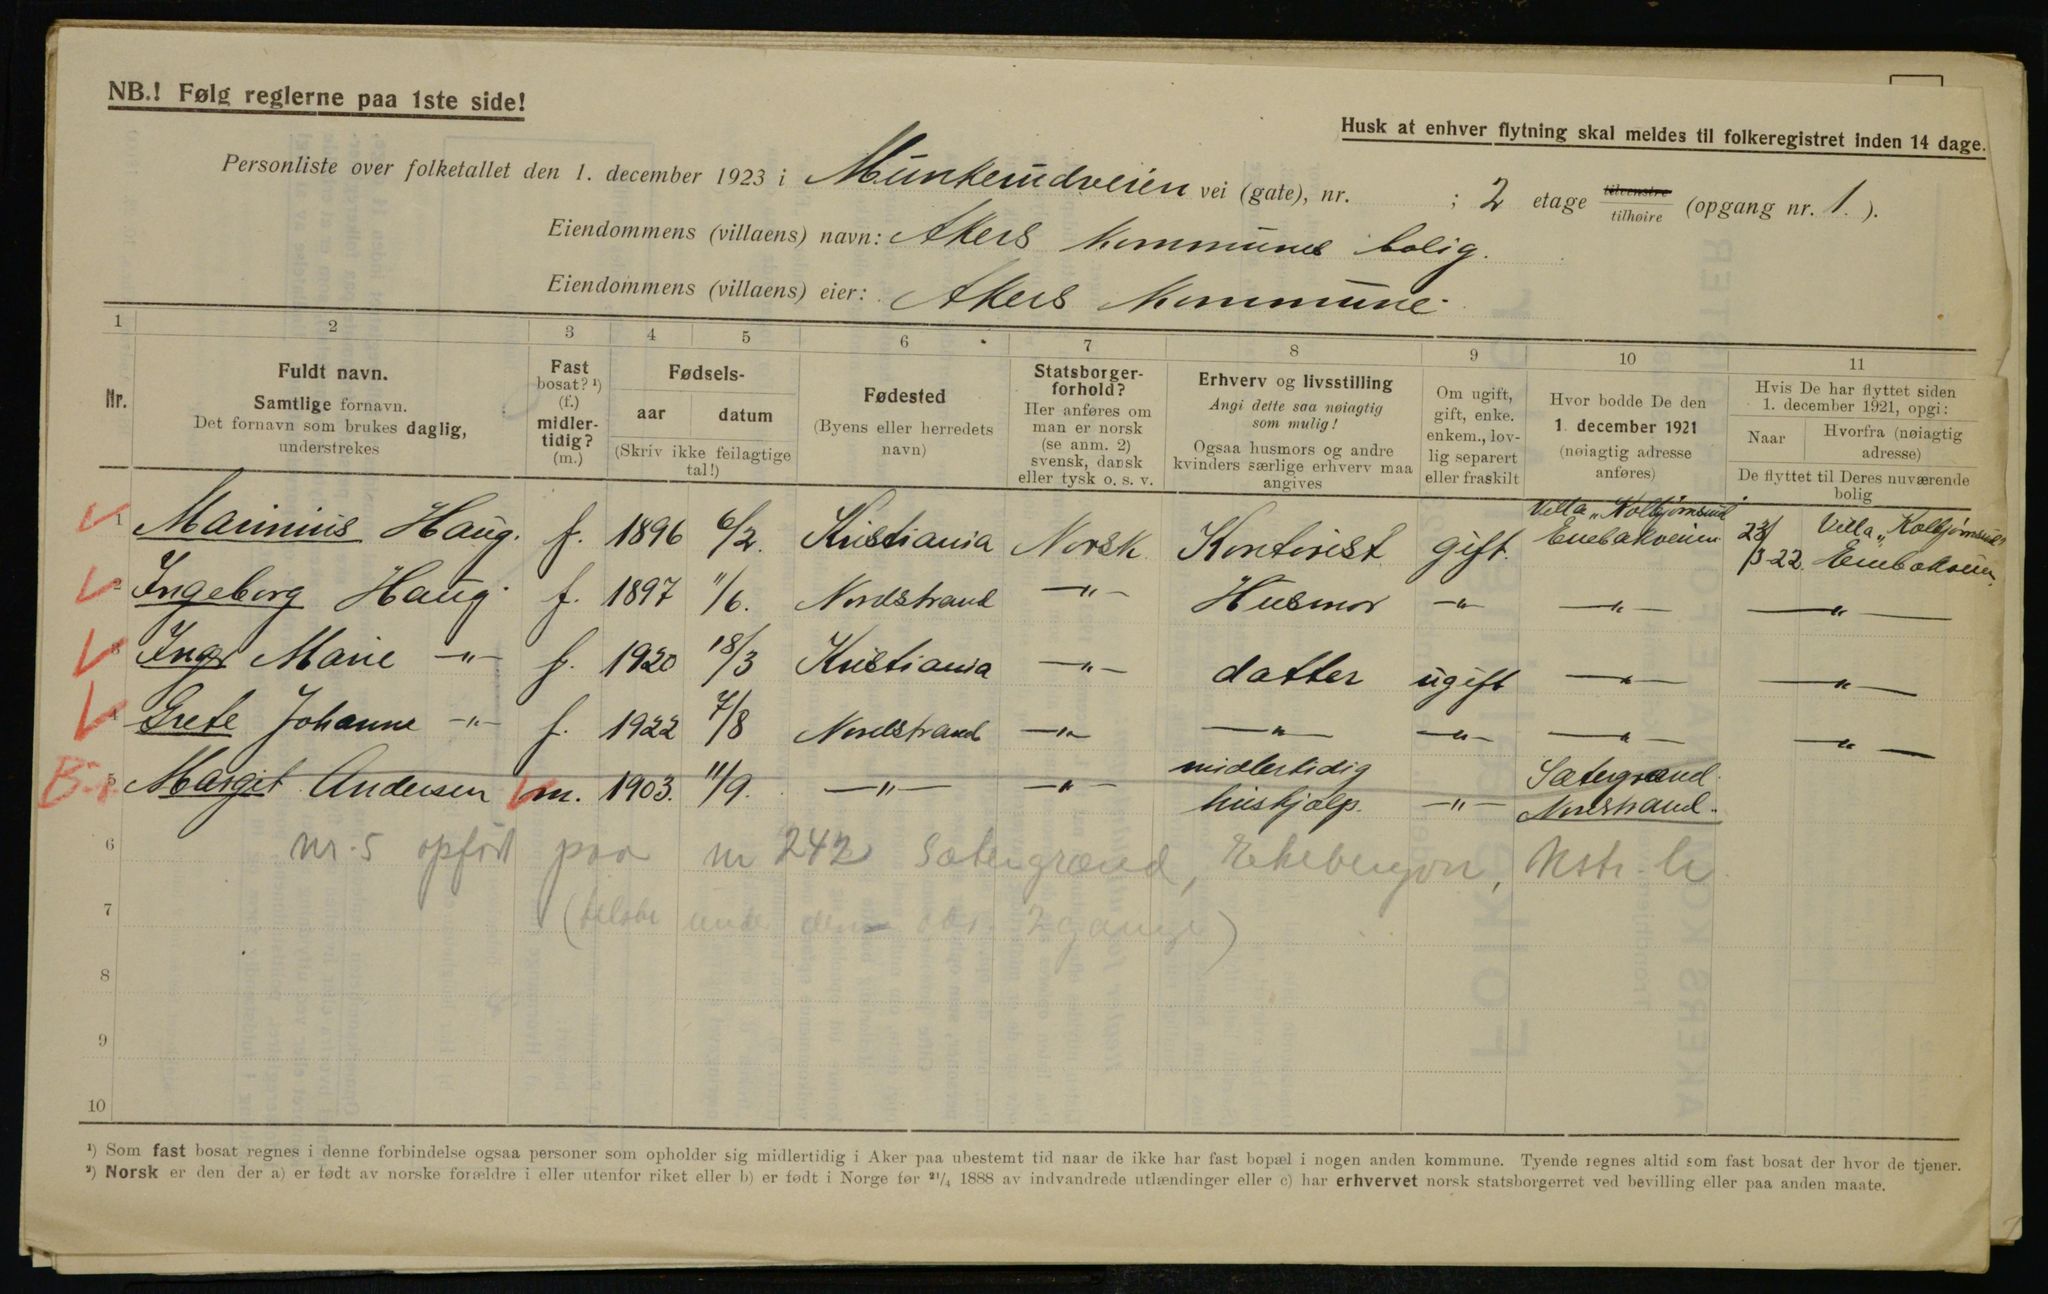 NB.! Følg reglerne paa 1ste side!
Husk at enhver flytning skal meldes til folkeregistret inden 14 dage.
Personliste over folketallet den 1. december 1923 i Munkerudveien vei (gate), nr. ; 2 etage tilvenstre tilhøire (opgang nr. 1. ).
Eiendommens (villaens) navn: Akers Kommunes bolig.
Eiendommens (villaens) eier: Akers Kommune.
1 2 3 4 5 6 7 8 9 10 11
Nr.
Fuldt navn.
Samtlige fornavn.
Det fornavn som brukes daglig,
understrekes
Fast
bosat? ¹)
(f.)
midler-
tidig?
(m.)
Fødsels-
aar datum
(Skriv ikke feilagtige
tal!)
Fødested
(Byens eller herredets
navn)
Statsborger-
forhold?
Her anføres om
man er norsk
(se anm. 2)
svensk, dansk
eller tysk o. s. v.
Erhverv og livsstilling
Angi dette saa nøiagtig
som mulig!
Ogsaa husmors og andre
kvinders særlige erhverv maa
angives
Om ugift,
gift, enke.
enkem., lov-
lig separert
eller fraskilt
Hvor bodde De den
1. december 1921
(nøiagtig adresse
anføres)
Hvis De har flyttet siden
1. december 1921, opgi:
Naar Hvorfra (nøiagtig
adresse)
De flyttet til Deres nuværende
bolig
1 Marinius Haug. f. 1896 6/2. Kristiania Norsk Kontorist gift. Villa „Kolbjørnsund" Enebakveien 23/3-22. Villa „Kolbjørnsund" Enebakveien.
2 Ingeborg Haug. f. 1897 11/6. Nordstrand —"— Husmor —"— —"— —"—
3 Inger Marie —"— f. 1920 18/3 Kristiania —"— datter ugift —"— —"—
4 Grete Johanne —"— f. 1922 7/8 Nordstrand —"— —"— —"— —"— —"—
5 Margit Andersen m. 1903. 11/9. —"— —"— midlertidig hushjælp. —"— Sætergrænd. Nordstrand.
6 nr. 5 opført paa nr 242 Sætergrænd, Ekebergvn, Nstr. h
7 ( 2 gange)
8
9
10
¹) Som fast bosat regnes i denne forbindelse ogsaa personer som opholder sig midlertidig i Aker paa ubestemt tid naar de ikke har fast bopæl i nogen anden kommune. Tyende regnes altid som fast bosat der hvor de tjener.
²) Norsk er den der a) er født av norske forældre i eller utenfor riket eller b) er født i Norge før ²¹/₄ 1888 av indvandrede utlændinger eller c) har erhvervet norsk statsborgerret ved bevilling eller paa anden maate.